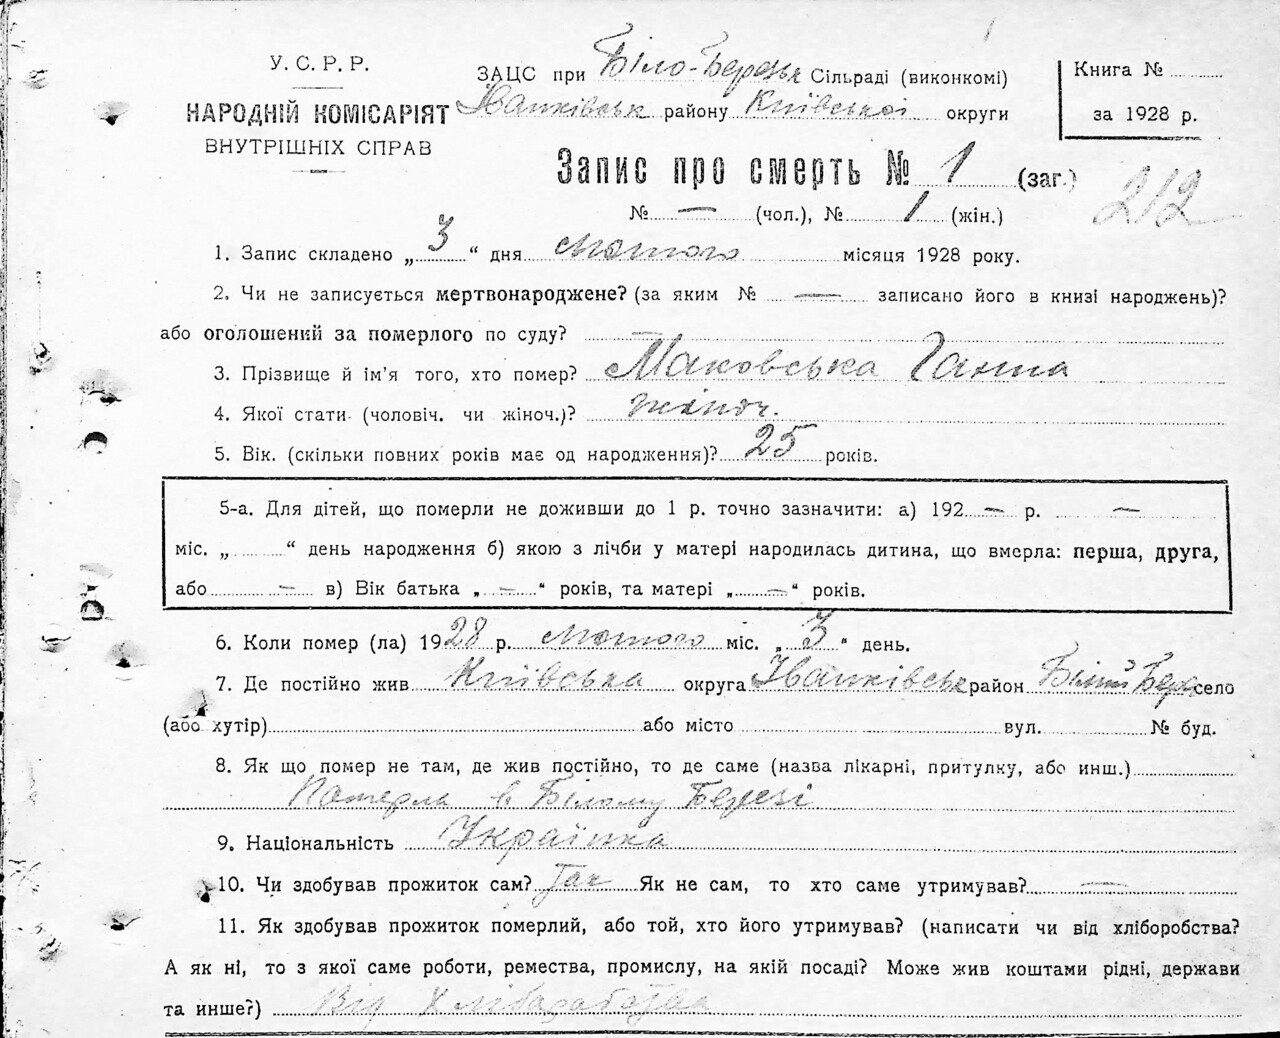 У. С. Р. Р.
НАРОДНІЙ КОМІСАРІЯТ
ВНУТРІШНІХ СПРАВ
ЗАЦС при Біло-Березьк Сільраді (виконкомі)
Іванківськ району Київської округи
Книга №
за 1928 р.
Запис про смерть № 1 (заг.)
212
№ — (чол.), № 1 (жін.)
1. Запис складено „3“ дня лютого місяця 1928 року.
2. Чи не записується мертвонароджене? (за яким № — записано його в книзі народжень)?
або оголошений за померлого по суду? —
3. Прізвище й ім'я того, хто помер? Маковська Ганна
4. Якої стати (чоловіч. чи жіноч.)? жіноч.
5. Вік. (скільки повних років має од народження)? 25 років.
5-а. Для дітей, що померли не доживши до 1 р. точно зазначити: а) 192 — р. —
міс. „ “ день народження б) якою з лічби у матері народилась дитина, що вмерла: перша, друга,
або — в) Вік батька „ — “ років, та матері „ — “ років.
6. Коли помер (ла) 1928 р. лютого міс. „3“ день.
7. Де постійно жив Київська округа Іванківськ район Білий Берег село
(або хутір) або місто вул. № буд.
8. Як що помер не там, де жив постійно, то де саме (назва лікарні, притулку, або инш.)
Померла в Білому Березі
9. Національність Українка
10. Чи здобував прожиток сам? Так Як не сам, то хто саме утримував? —
11. Як здобував прожиток померлий, або той, хто його утримував? (написати чи від хліборобства?
А як ні, то з якої саме роботи, ремества, промислу, на якій посаді? Може жив коштами рідні, держави
та инше?) Від Хліборобства